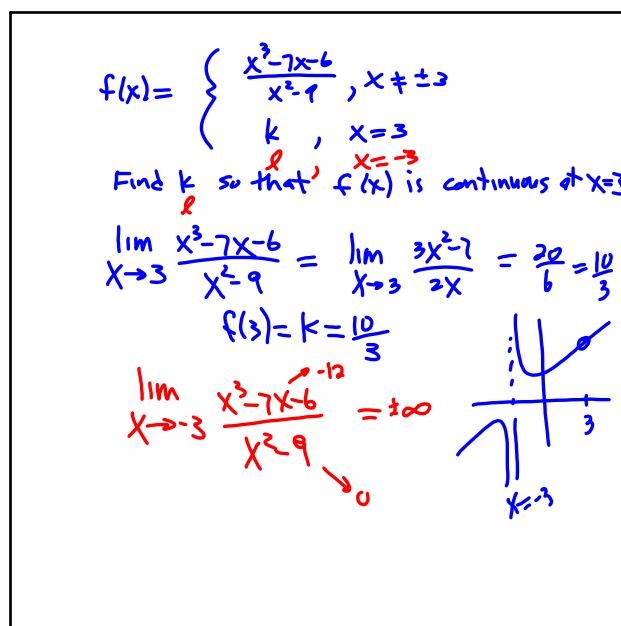 f(x) = { (x³-7x-6)/(x²-9) , x ≠ ±3
k , x = 3
l , x = -3
Find k so that f(x) is continuous at x=3
l
lim x→3 (x³-7x-6)/(x²-9) = lim x→3 (3x²-7)/(2x) = 20/6 = 10/3
f(3) = k = 10/3
lim x→-3 (x³-7x-6)/(x²-9) = ±∞
-12
0
3
x=-3